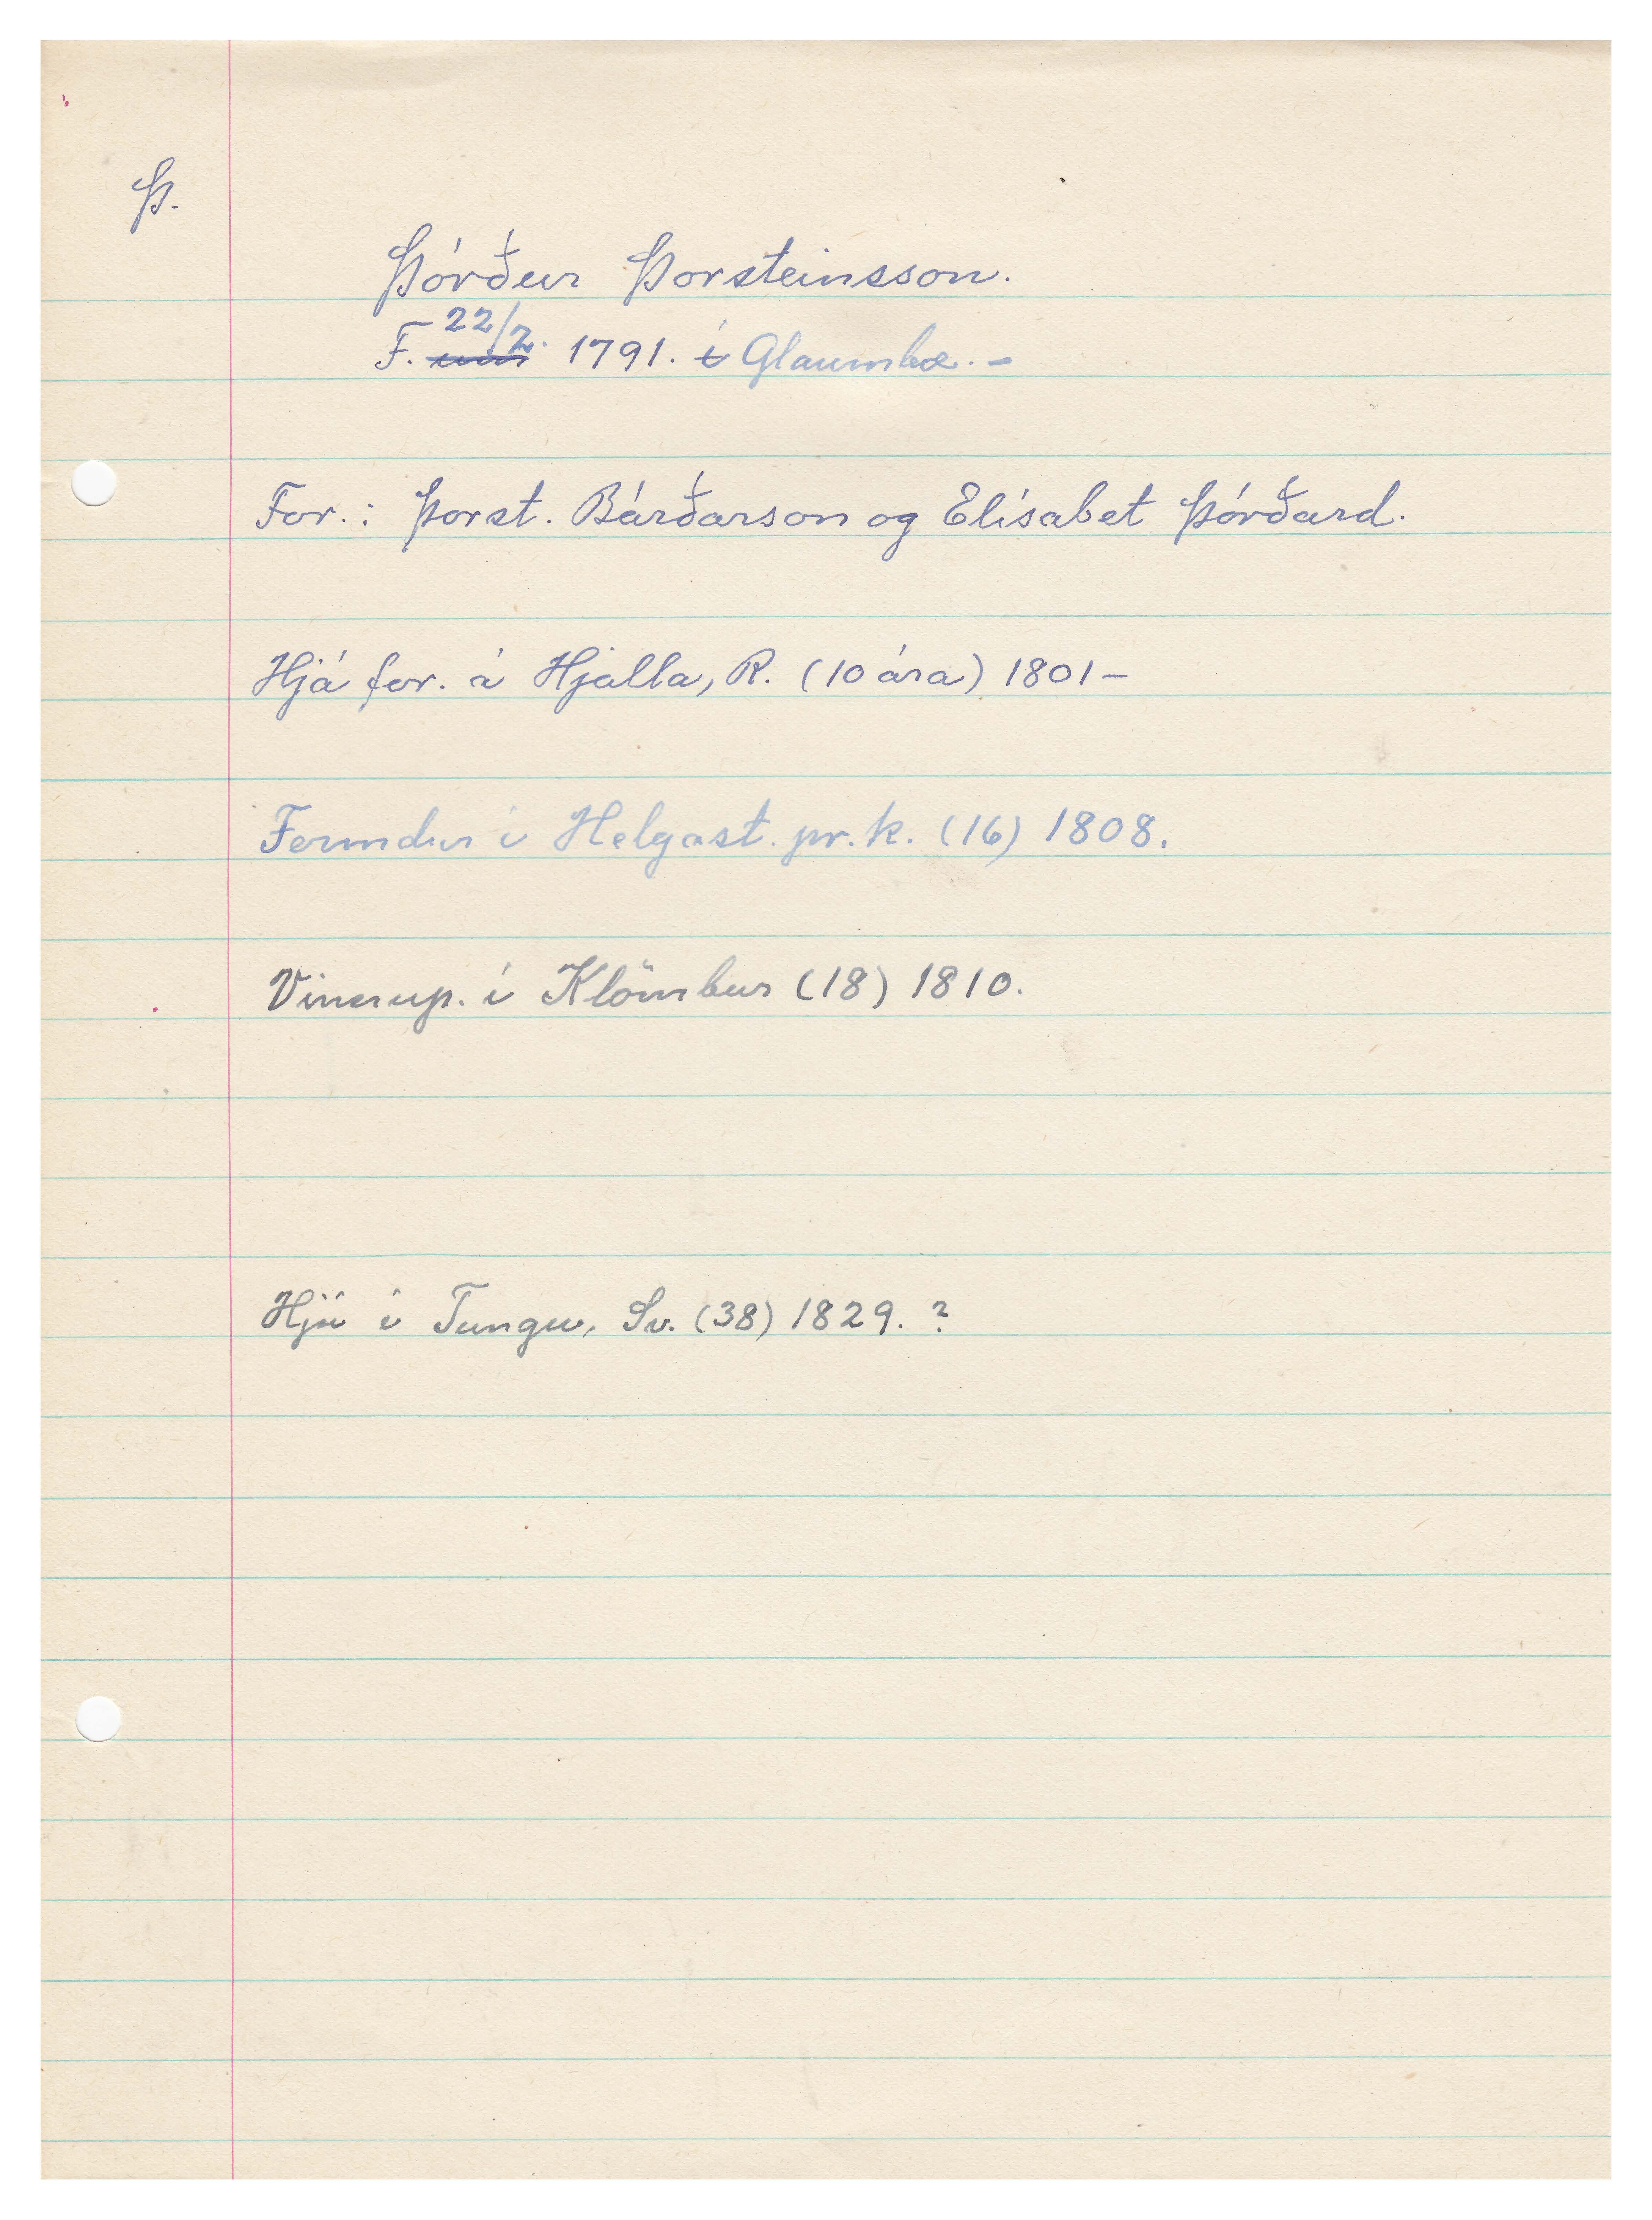 Þ.
Þórður Þorsteinsson.
F. 22/2. 1791. í Glaumbæ. -
For.: Þorst. Bárðarson og Elísabet Þórðard.
Hjá for. á Hjalla, R. (10 ára) 1801 -
Fermdur í Helgast. pr.k. (16) 1808.
Vinnup. í Klömbur (18) 1810.
Hjú í Tungu, Sv. (38) 1829. ?